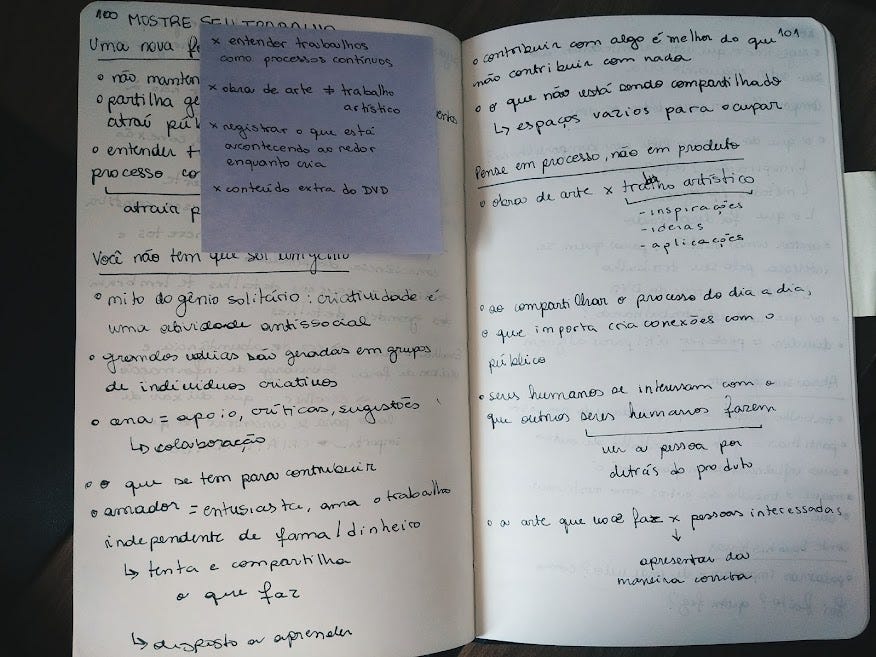 100 MOSTRE SEU TRABALHO
Uma nova
o não
o partilha
atrai
o entender
processo
atrair
x entender trabalhos
como processos contínuos
x obra de arte ≠ trabalho
artístico
x registrar o que está
acontecendo ao redor
enquanto cria
x conteúdo extra do DVD
Você não tem que ser um gênio
o mito do gênio solitário: criatividade é
uma atividade antissocial
o grandes ideias são geradas em grupos
de indivíduos criativos
o = apoio, críticas, sugestões
↳ colaboração
o o que se tem para contribuir
o amador = entusiasta, ama o trabalho
independente de fama/dinheiro
↳ tenta e compartilha
o que faz
↳ disposto a aprender
101
o contribuir com algo é melhor do que
não contribuir com nada
o o que não está sendo compartilhado
↳ espaços vazios para ocupar
Pense em processo, não em produto
o obra de arte x trabalho artístico
- inspirações
- ideias
- aplicações
o ao compartilhar o processo do dia a dia,
o que importa cria conexões com o
público
o seres humanos se interessam com o
que outros seres humanos fazem
ver a pessoa por
detrás do produto
o a arte que você faz x pessoas interessadas
↓
apresentar da
maneira correta